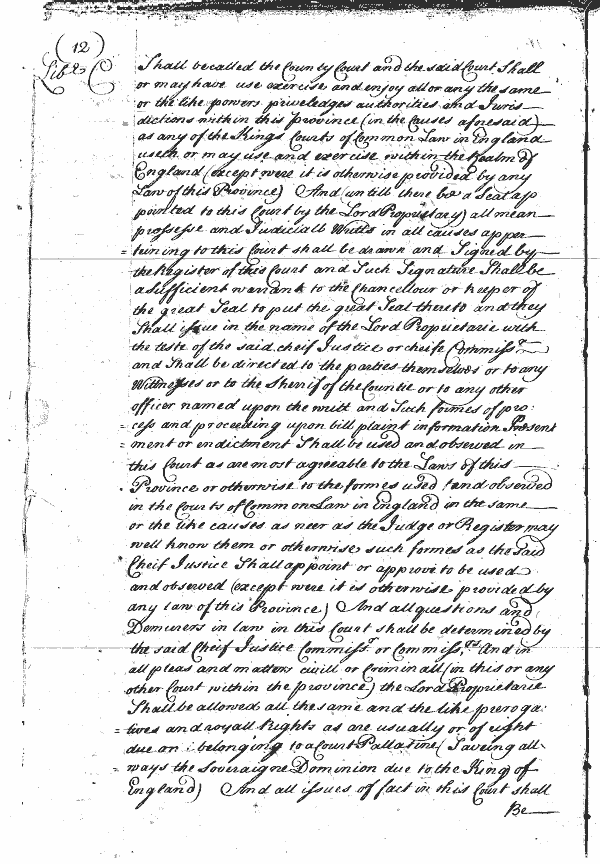 (12)
Lib C
Shall be called the County Court and the said Court Shall
or may have use exercise and enjoy all or any the same
or the like powers priveledges authorities and Juris
dictions within this province (in the Causes aforesaid)
as any of the Kings Courts of Common Law in England
useth or may use and exercise within the Realm of
England (except were it is otherwise provided by any
Law of this Province) And untill there be a Seal ap
pointed to this Court by the Lord Proprietary) all mean
processe and Judiciall Writts in all causes apper
= taining to this Court shall be drawn and Signed by
the Register of this Court and Such Signature Shall be
a sufficient warrant to the Chancellour or keeper of
the great Seal to put the great Seal thereto and they
Shall issue in the name of the Lord Proprietarie with
the teste of the said cheif Justice or cheife Commissr
and Shall be directed to the parties themselves or to any
Wittnesses or to the Sherrif of the Countie or to any other
officer named upon the writt and Such formes of pro:
cess and proceeding upon bill plaint information Present
= ment or endictment Shall be used and observed in
this Court as are most agreeable to the Laws of this
Province or otherwise to the formes used and observed
in the Courts of Common Law in England in the same
or the like causes as neer as the Judge or Register may
well know them or otherwise such formes as the said
Cheif Justice Shall appoint or approve to be used
and observed (except were it is otherwise provided by
any law of this Province) And all questions and
Demurers in law in this Court shall be determined by
the said Cheif Justice Commissr or Commissrs And in
all pleas and matters civill or Criminall (in this or any
other Court within the province) the Lord Proprietarie
Shall be allowed all the same and the like preroga:
= tives and royall Rights as are usually or of right
due or belonging to a Court Pallatine (Saveing all
= ways the Soveraigne Dominion due to the King of
England) And all issues of fact in this Court shall
Be